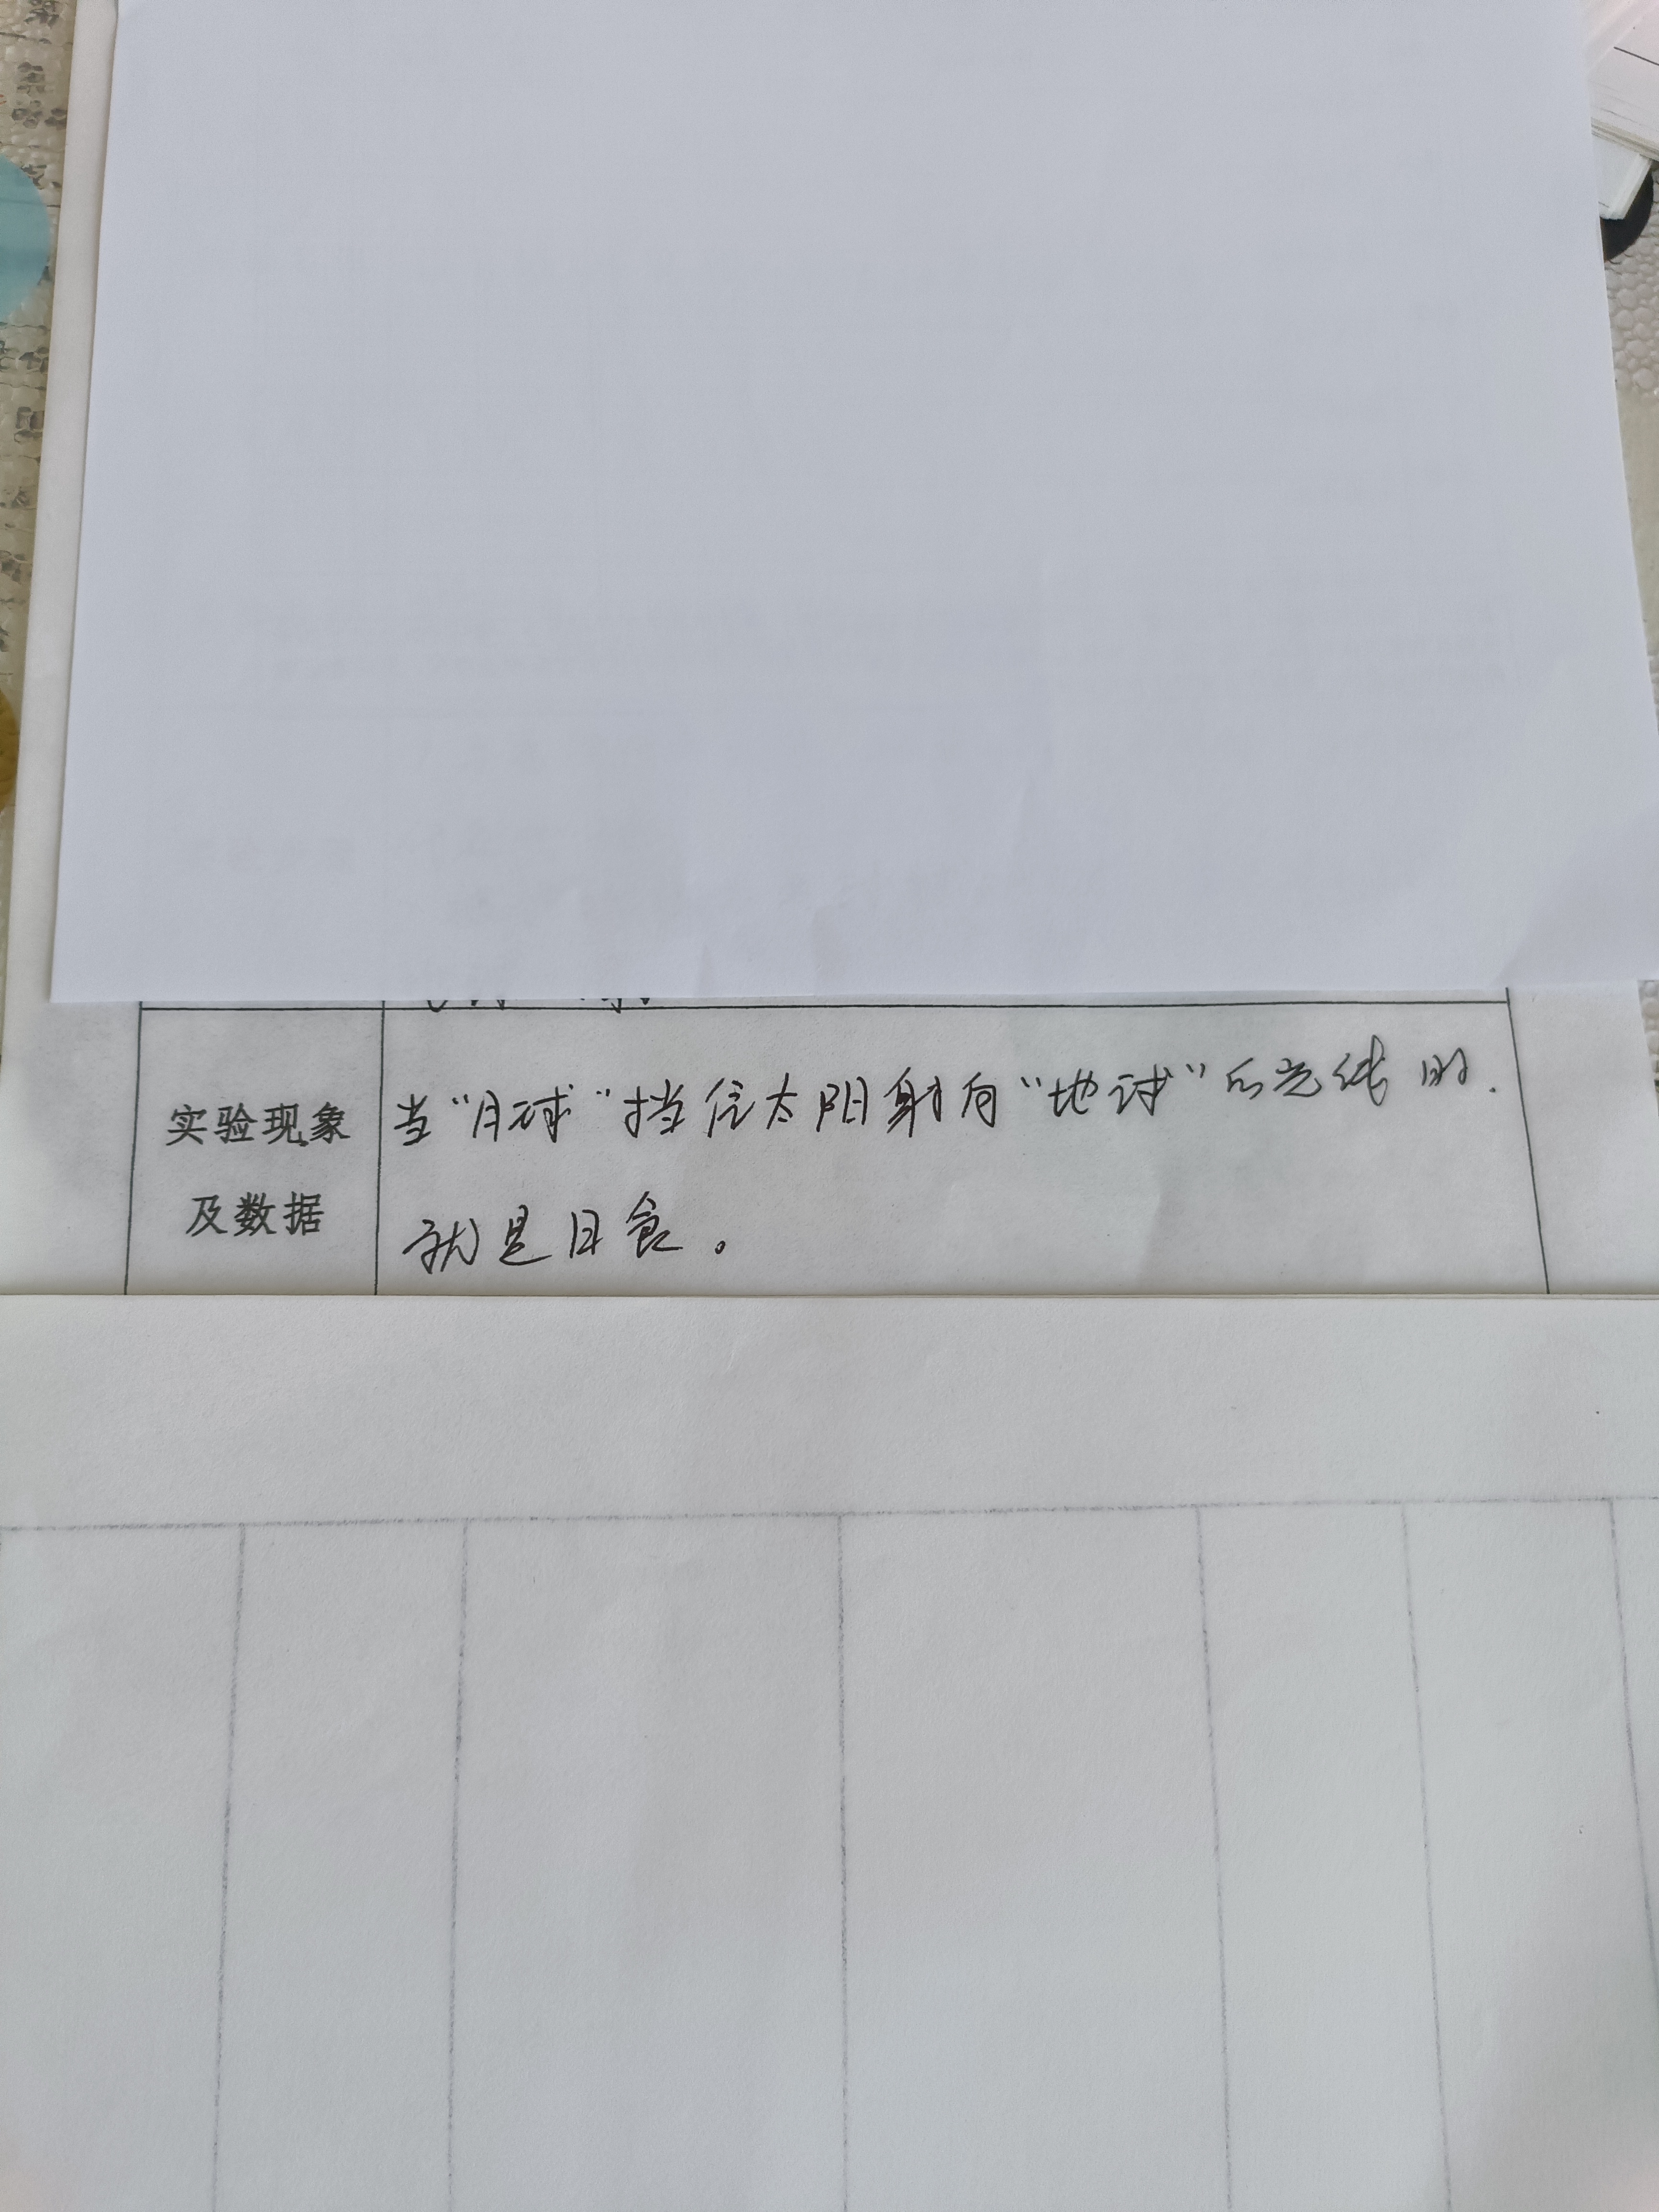 实验现象
及数据
当“月球”挡住太阳射向“地球”的光线时.
就是日食。